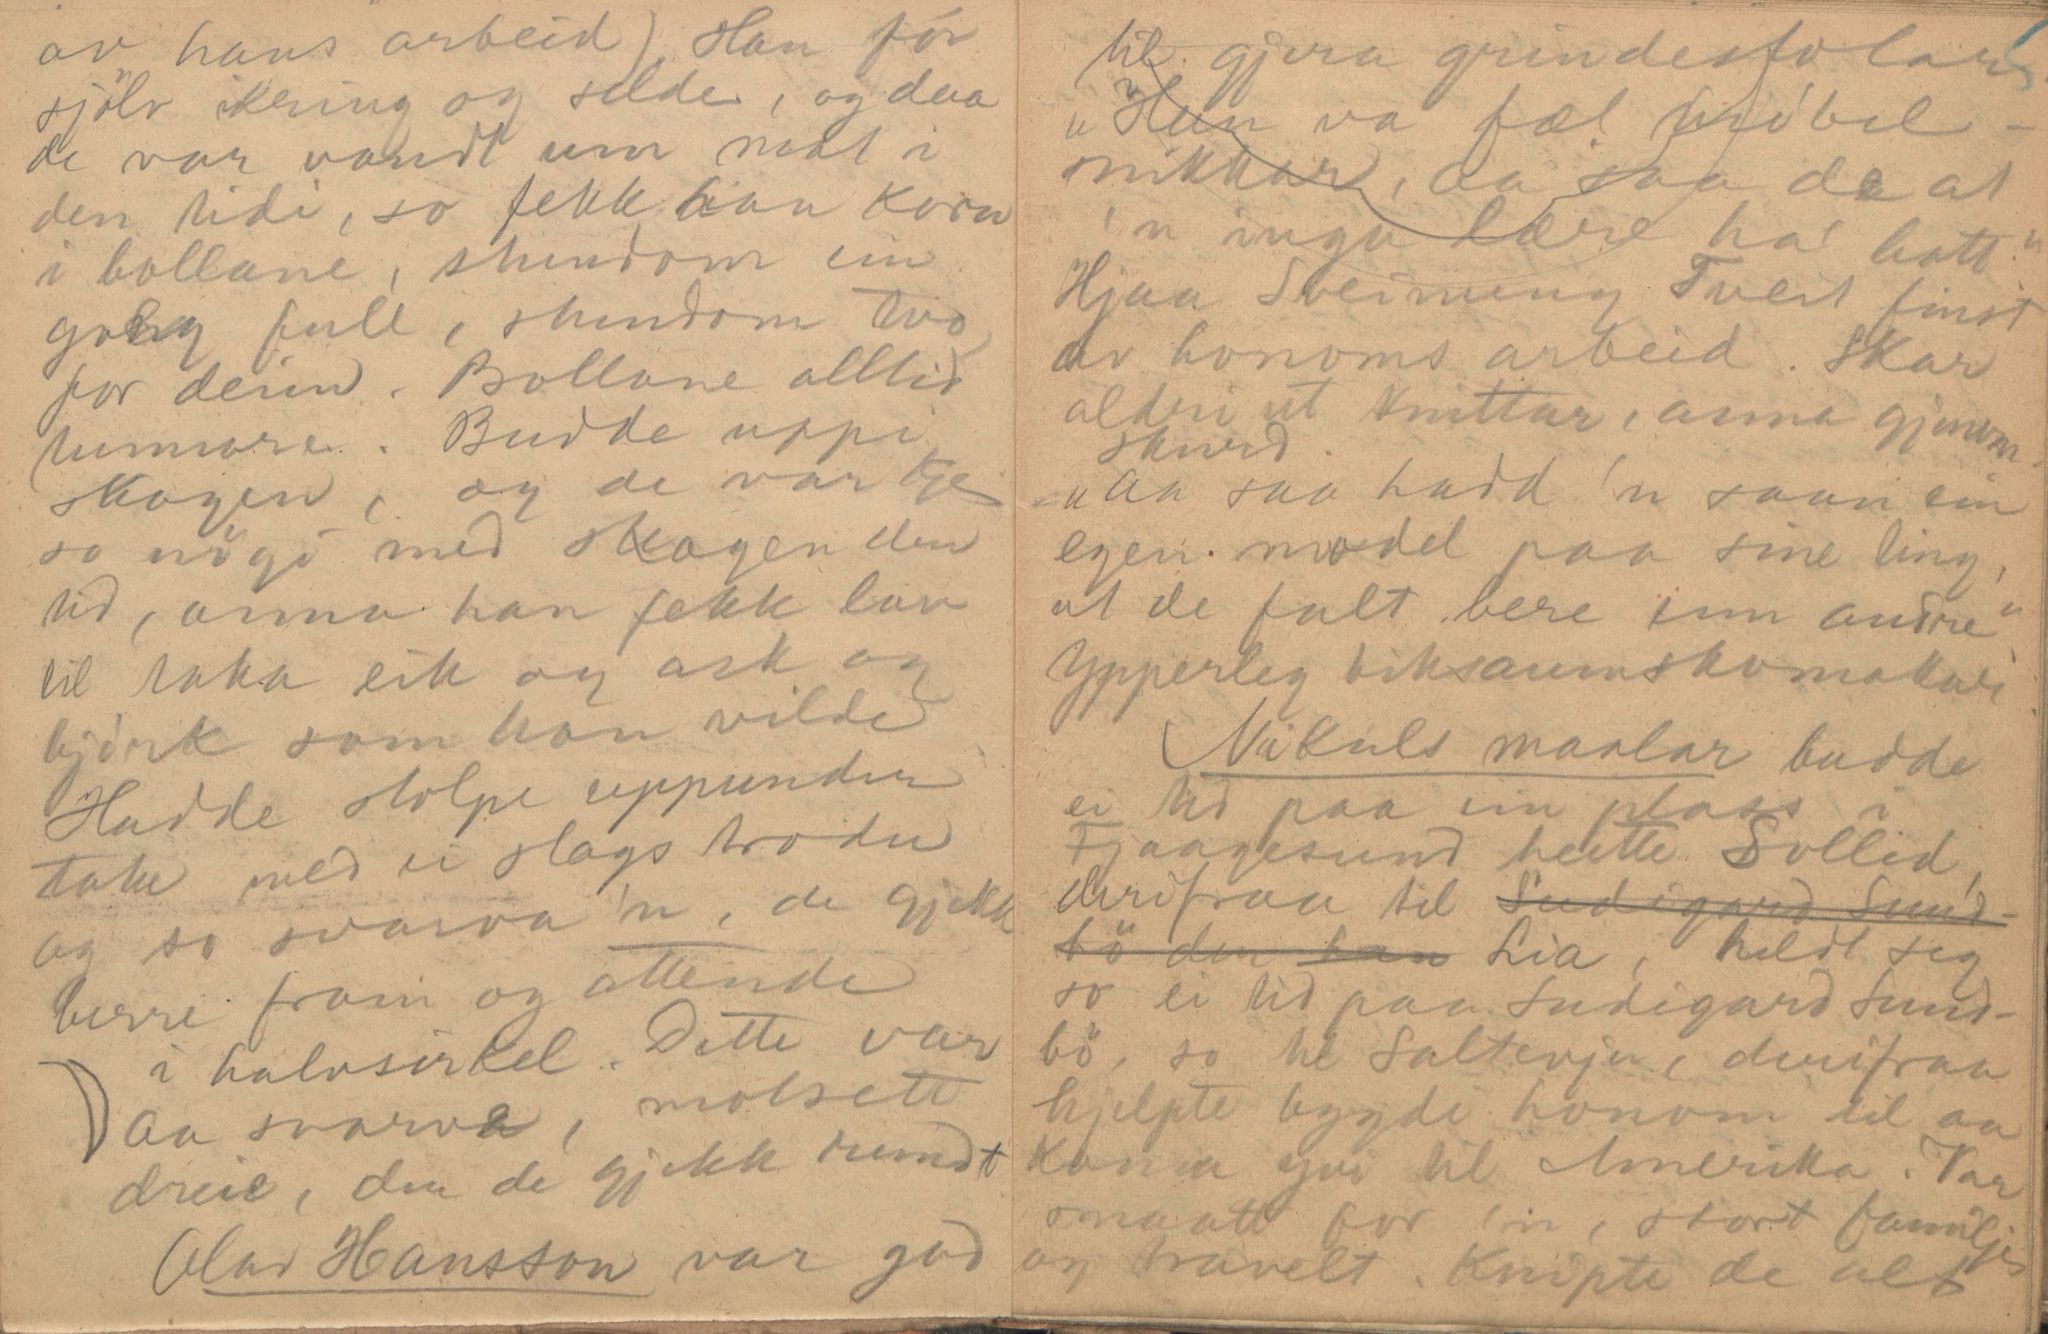 av hans arbeid) Han fór
sjölv ikring og selde, og daa
de var vandt um mat i
den tidi, so fekk han korn
i bollane, stundom ein
gong full, stundom two
for deim. Bollane alltid
tunnare. Budde uppi
skogen, og de var kje
so nögö med skogen den
tid, anna han fekk lov
til taka eik og ask og
björk som han vilde
Hadde stolpe uppunder
take med ei slags trodu
og so svarva 'n, de gjekk
berre fram og attende
i halvsirkel. Dette var
aa svarva, motsett
dreie, der de gjekk rundt
Olav Hansson var god
til gjera grindestolar
"Han va fæl möbel-
snikkar, aa saa de at
'n inga lære ha' hatt"
Hjaa Sveinung Tveit finst
av honoms arbeid. Skar
aldri ut knittar, anna gjenom-
skurd.
- "Aa saa hadd 'n saan ein
egen model paa sine ting,
at de falt bere inn andre"
Ypperleg biksaumskomakar
Nikuls maalar budde
ei tid paa ein plass i
Fjaagesund heitte Sollid,
derifraa til Sudigard Sund-
bö der han Lia, heldt seg
so ei tid paa Sudigard Sund-
bö, so til Saltevju, derifraa
hjelpte bygdi honom til aa
koma yvi til Amerika. Var
smaatt for 'n, stort familje
og travelt. Knipte de alt